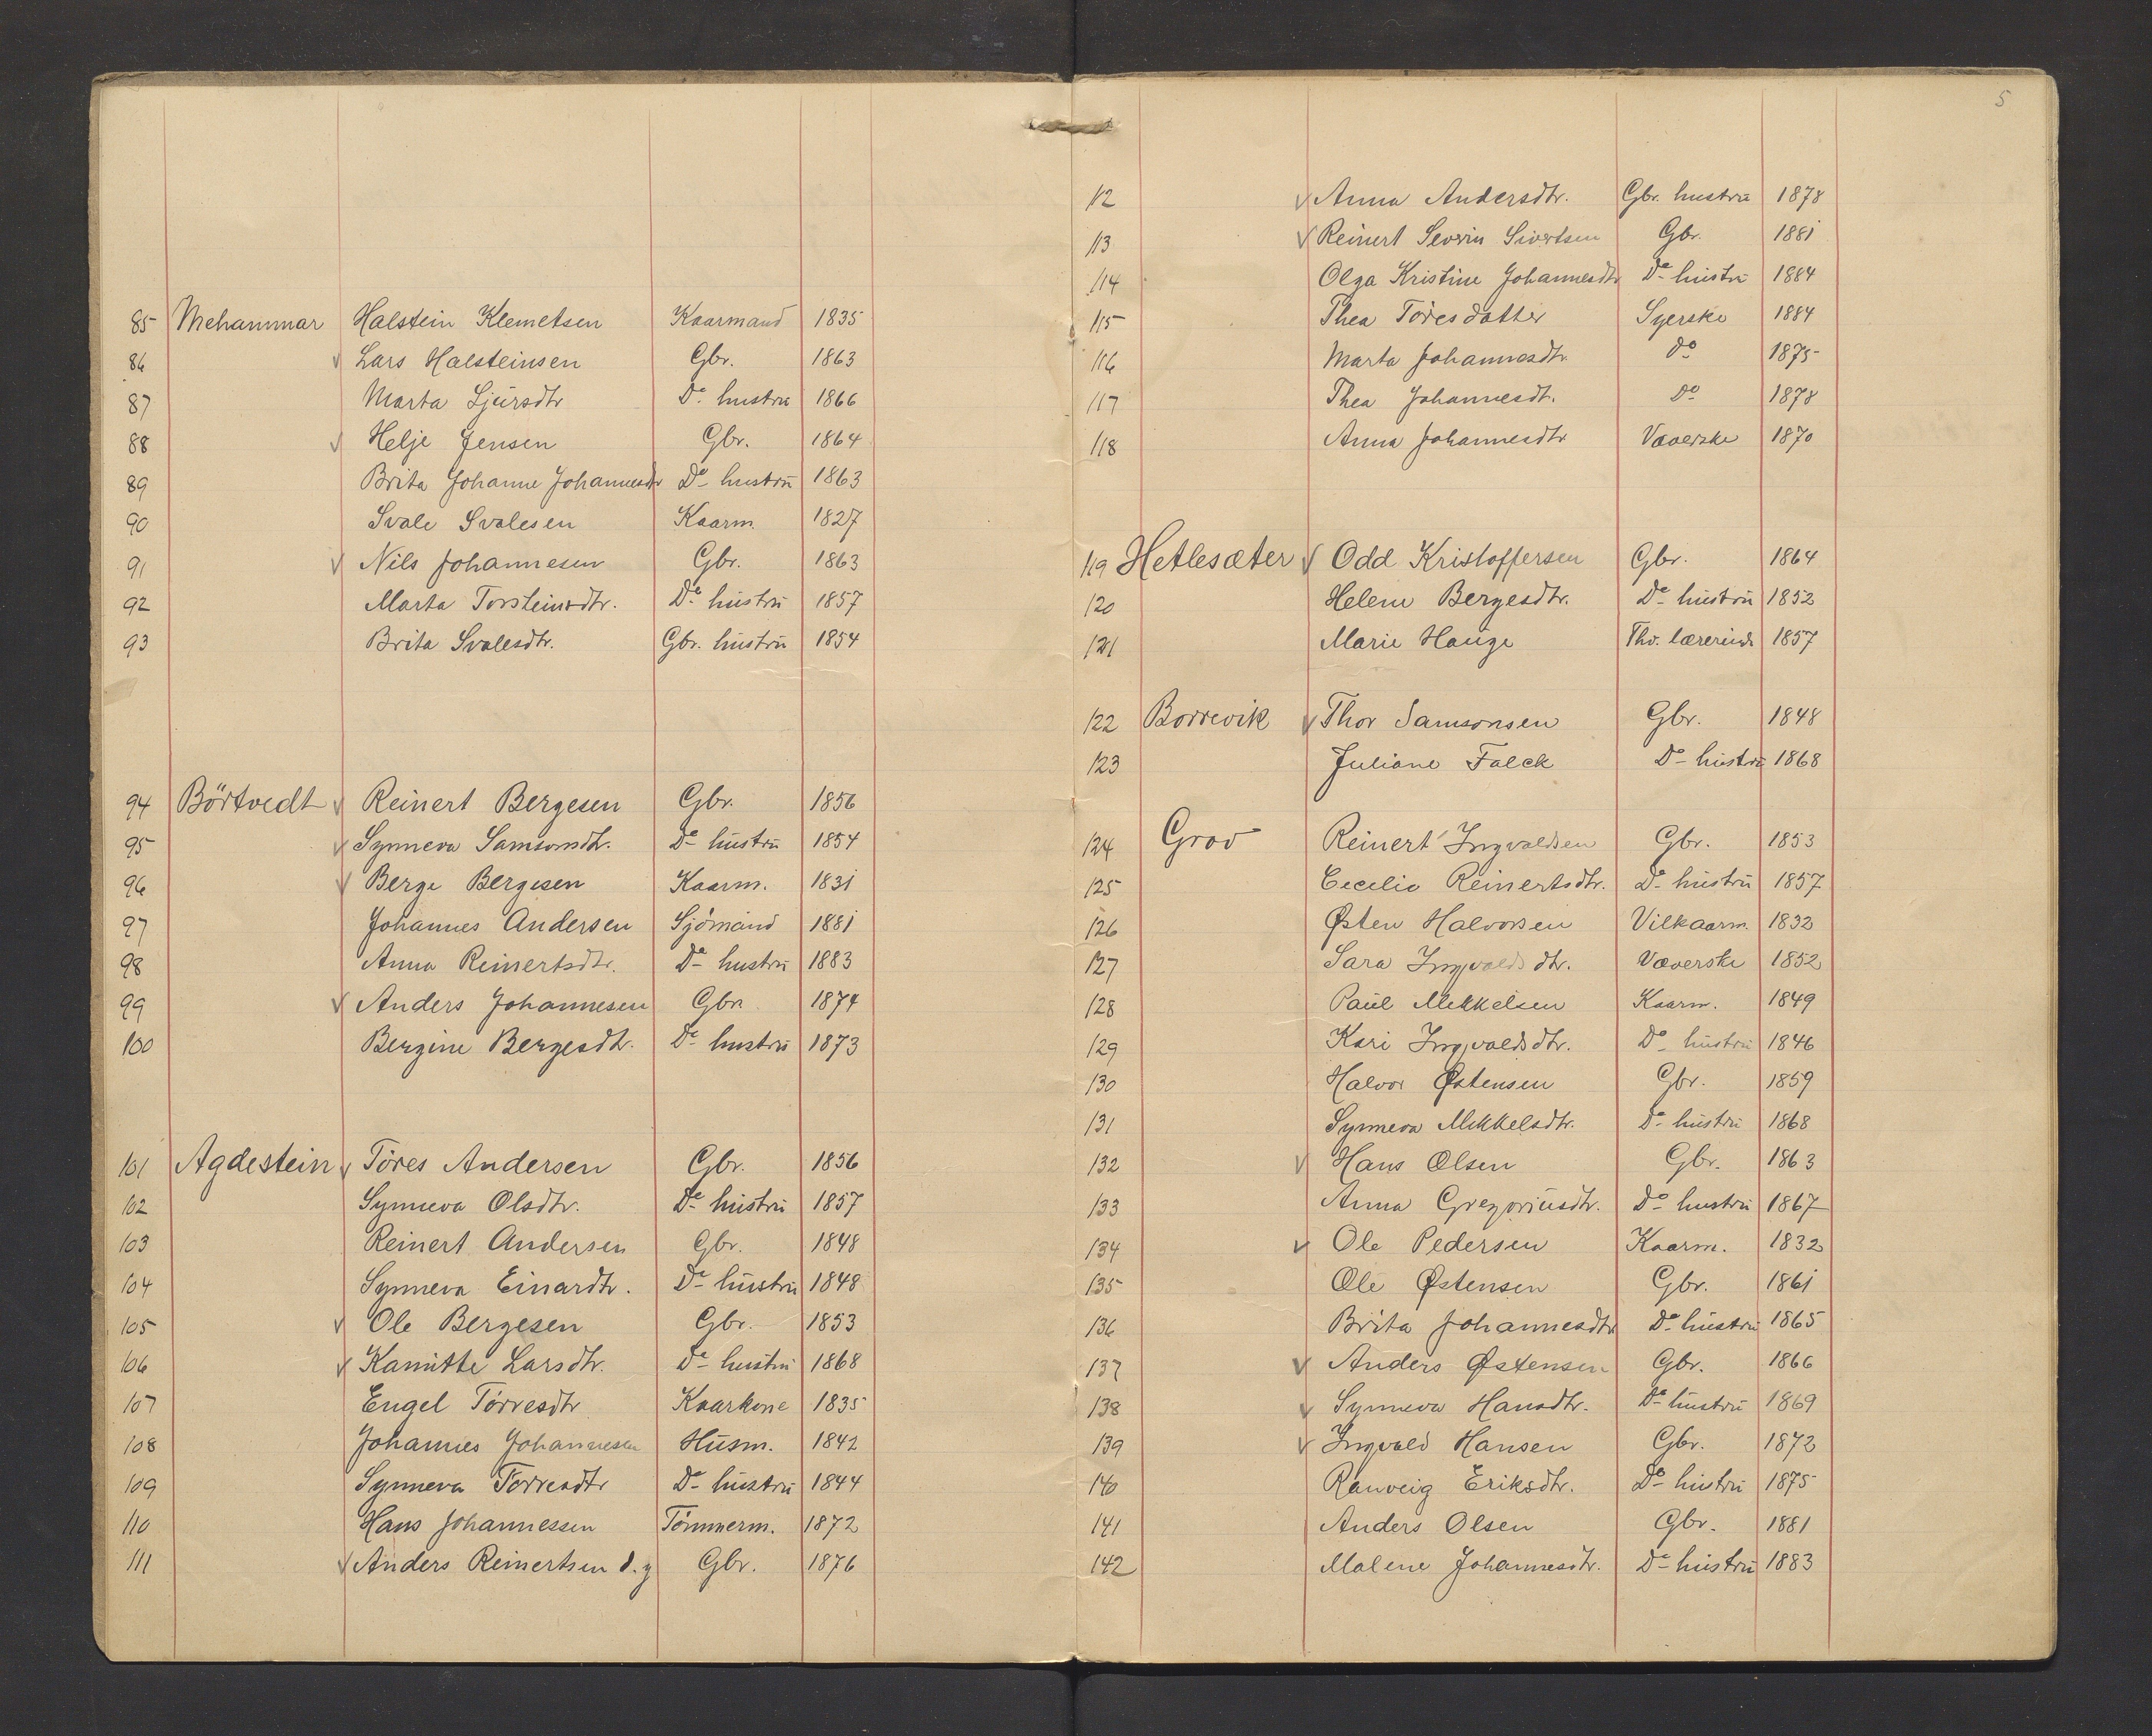 85 Mehammar Halstein Klemetsen Kaarmand 1835
86 √ Lars Halsteinsen Gbr. 1863
87 Marta Sjursdtr Do hustru 1866
88 √ Helje Jensen Gbr. 1864
89 Brita Johanne Johannesdr Do hustru 1863
90 Svale Svalesen Kaarm. 1827
91 √ Nils Johannesen Gbr. 1863
92 Marta Torsteinsdtr. Do hustru 1857
93 Brita Svalesdtr. Gbr. hustru 1854
94 Börtvedt √ Reinert Bergesen Gbr. 1856
95 √ Synneva Samsonsdtr. Do hustru 1854
96 √ Berge Bergesen Kaarm. 1831
97 Johannes Andersen Sjömand 1881
98 Anna Reinertsdtr. Do hustru 1883
99 √ Anders Johannesen Gbr. 1874
100 Bergine Bergesdtr. Do hustru 1873
101 Agdestein √ Töres Andersen Gbr. 1856
102 Synneva Olsdtr. Do hustru 1857
103 Reinert Andersen Gbr. 1848
104 Synneva Einardtr. Do hustru 1848
105 √ Ole Bergesen Gbr. 1853
106 √ Kamitte Larsdtr. Do hustru 1868
107 Engel Törresdtr Kaarkone 1835
108 Johannes Johannesen Husm. 1842
109 Synneva Torresdtr Do hustru 1844
110 Hans Johannessen Tömmerm. 1872
111 √ Anders Reinertsen d. y Gbr. 1876
5
112 √ Anna Andersdtr. Gbr. hustru 1878
113 √ Reinert Severin Sivertsen Gbr. 1881
114 Olga Kristine Johannesdtr Do hustru 1884
115 Thea Töresdatter Syerske 1884
116 Marta Johannesdtr. do 1875
117 Thea Johannesdt. Do 1878
118 Anna Johannesdtr Væverske 1870
119 Hetlesæter √ Odd Kristoffersen Gbr. 1864
120 Helene Bergesdtr. Do hustru 1852
121 Marie Hauge Thv. lærerinde 1857
122 Borrevik √ Thor Samsonsen Gbr. 1848
123 Juliane Falck Do hustru 1868
124 Grov Reinert Ingvaldsen Gbr. 1853
125 Cecilie Reinertsdtr. Do hustru 1857
126 Østen Halvorsen Vilkaarm. 1832
127 Sara Ingvaldsdtr. Væverske 1852
128 Paul Mikkelsen Kaarm. 1849
129 Kari Ingvaldsdtr. Do hustru 1846
130 Halvor Østensen Gbr. 1859
131 Synneva Mikkelsdtr. Do hustru 1868
132 √ Hans Olsen Gbr. 1863
133 Anna Gregoriusdtr. Do hustru 1867
134 √ Ole Pedersen Kaarm. 1832
135 Ole Østensen Gbr. 1861
136 Brita Johannesdtr Do hustru 1865
137 √ Anders Østensen Gbr. 1866
138 √ Synneva Hansdtr. Do hustru 1869
139 √ Ingvald Hansen Gbr. 1872
140 Ranveig Eriksdtr. Do hustru 1875
141 Anders Olsen Gbr. 1881
142 Malene Johannesdtr. Do hustru 1883